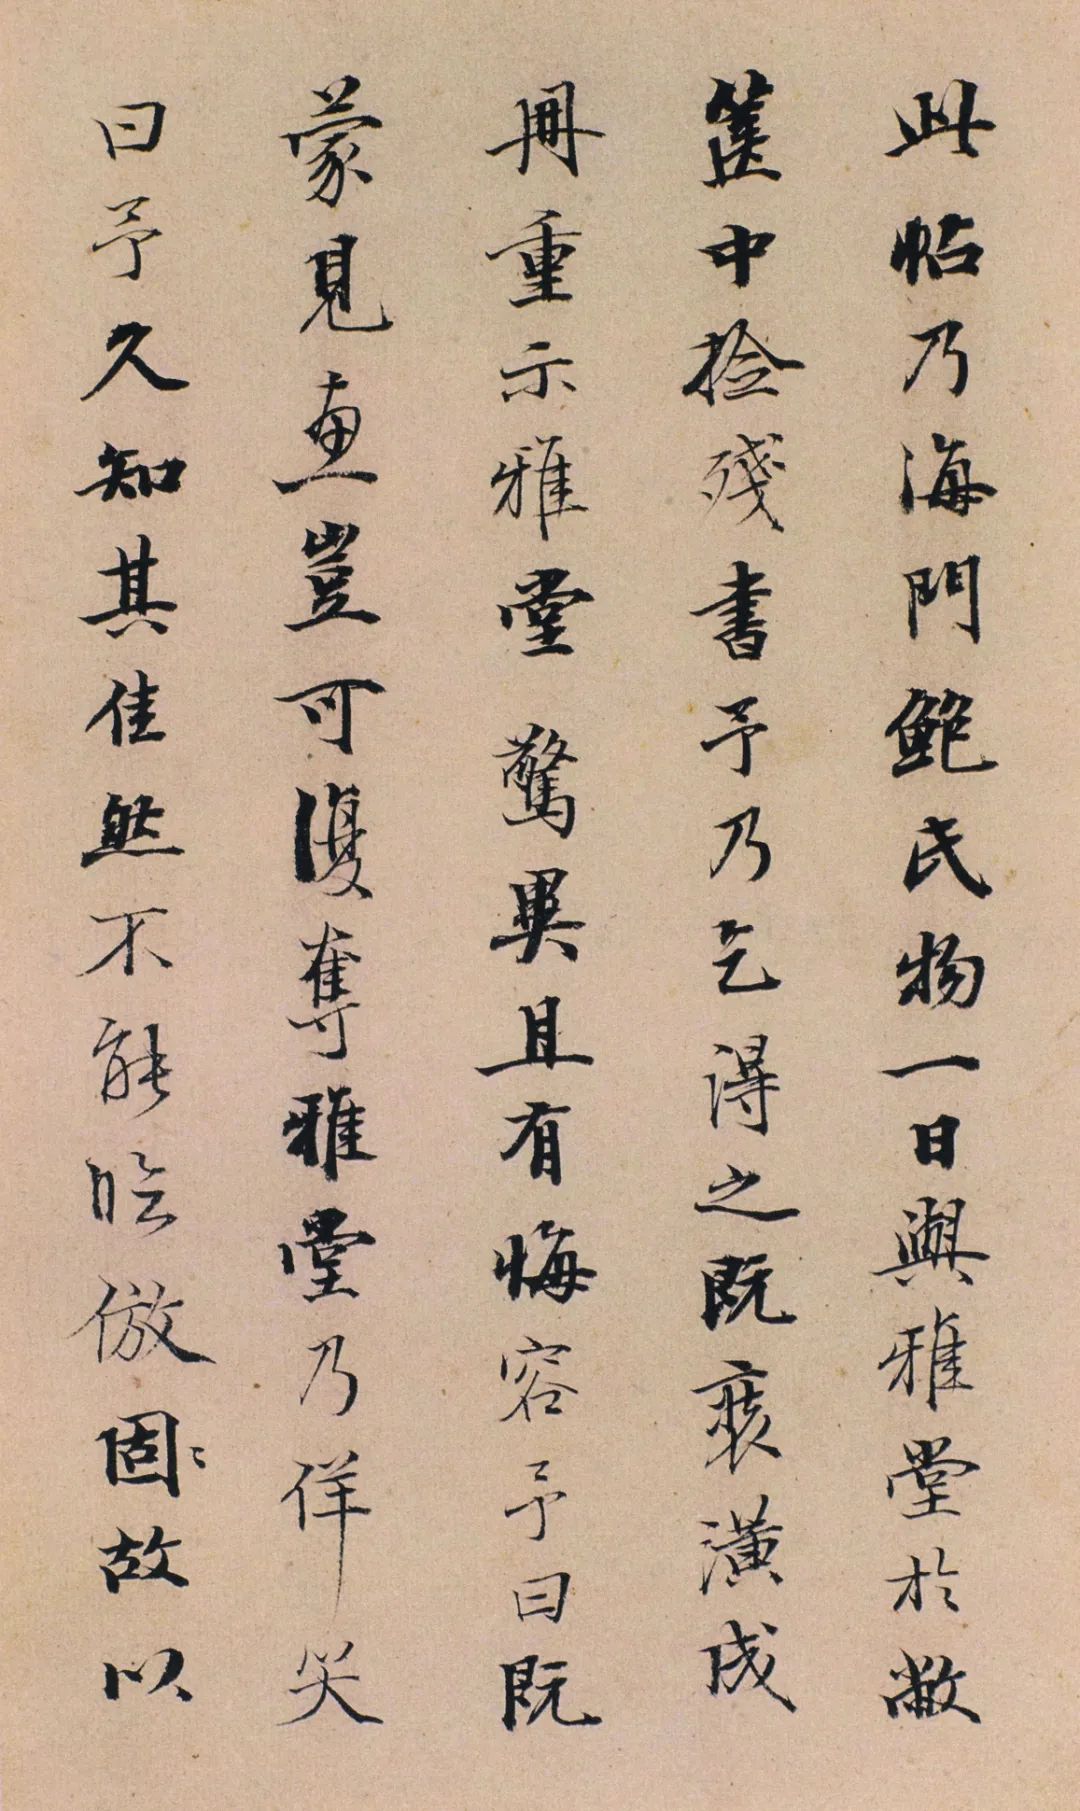 此帖乃海門鮑氏物一日與雅堂於敝
篋中撿殘書予乃乞得之既裝潢成
冊重示雅堂驚異且有悔容予曰既
蒙見惠豈可復奪雅堂乃佯笑
曰予久知其佳然不能臨倣固故以